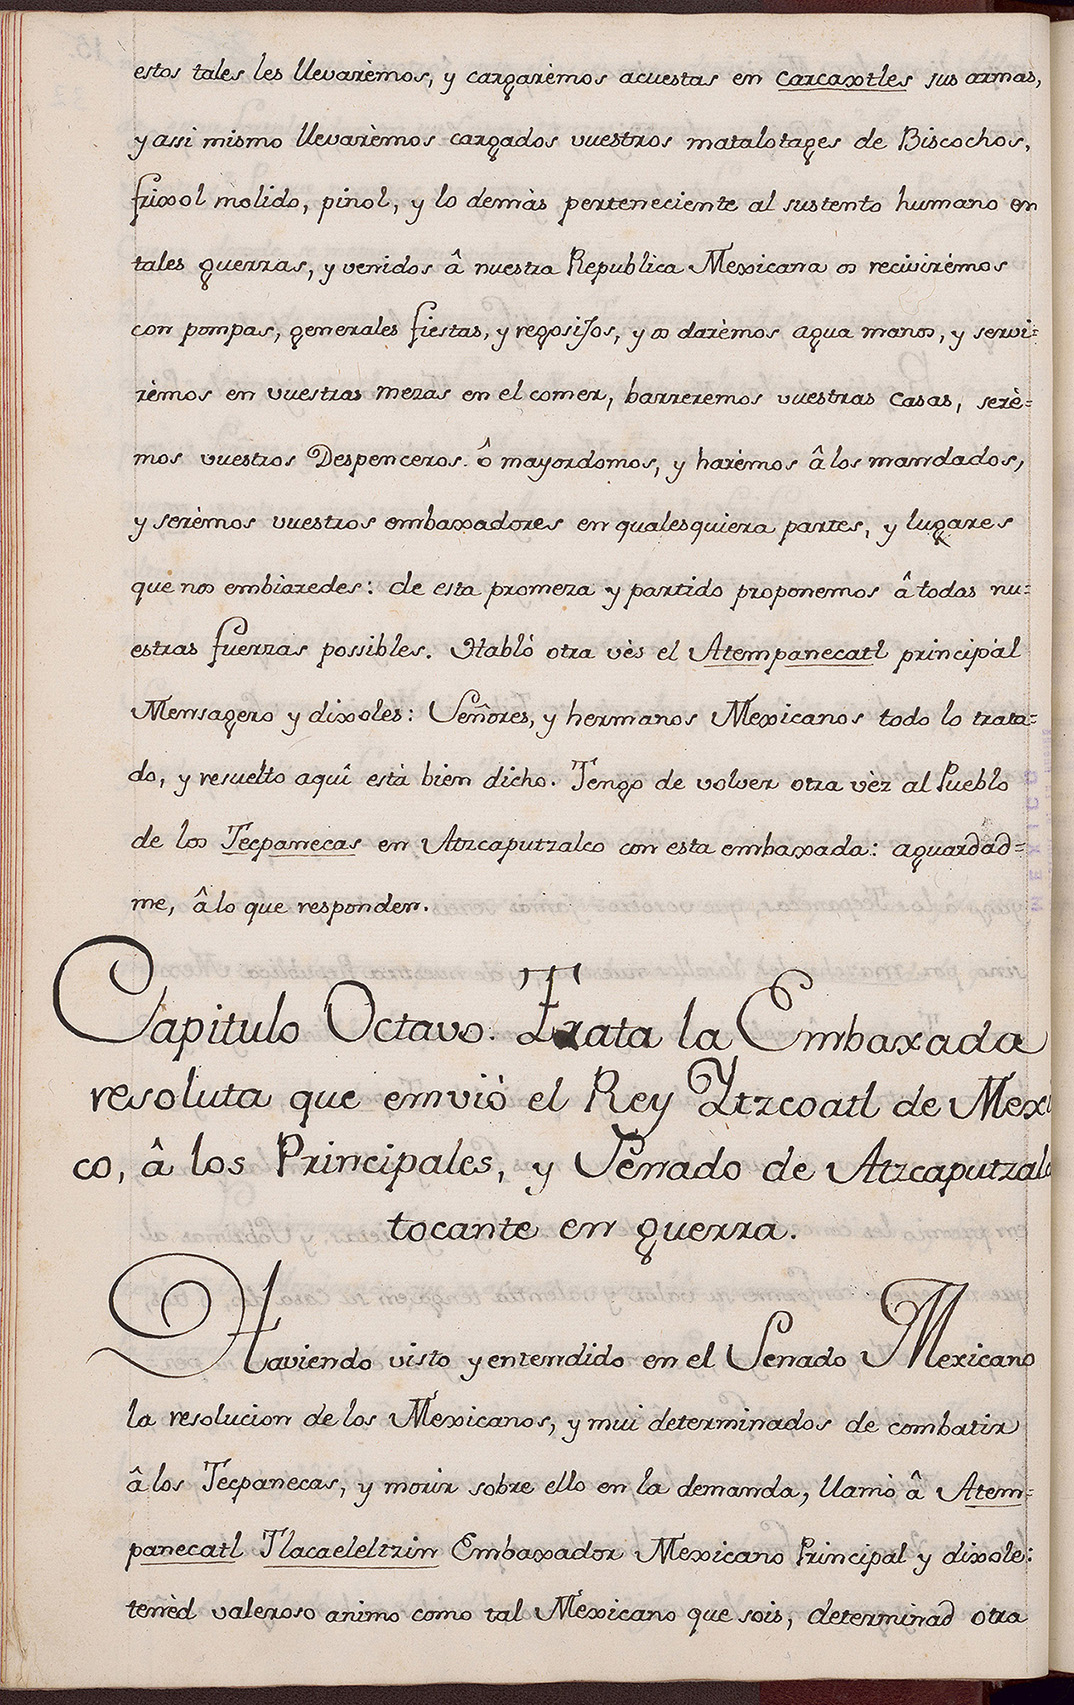 estos tales les llevarèmos, y cargarèmos acuestas en carcaxtles sus armas,
y assi mismo llevarèmos cargados vuestros matalotages de Biscochos,
frixol molido, pinol, y lo demàs perteneciente al sustento humano en
tales guerras, y venidos â nuestra Republica Mexicana os recivirémos
con pompas, generales fiestas, y regosiJos, y os darèmos agua manos, y servi=
rèmos en vuestras mezas en el comer, barreremos vuestras casas, serè=
mos vuestros Despenceros. ô mayordomos, y harèmos â los mandados,
y serèmos vuestros embaxadores en qualesquiera partes, y lugares
que nos embiaredes: de esta promeza y partido proponemos â todas nu=
estras fuerzas possibles. Habló otra vès el Atempanecatl principál
Mensagero y dixoles: Señores, y hermanos Mexicanos todo lo trata=
do, y resuelto aquî està bien dicho. Tengo de volver otra vèz al Pueblo
de los Tecpanecas en Atzcaputzalco con esta embaxada: aguardad=
me, â lo que responden.
Capitulo Octavo. Trata la Embaxada
resoluta que emviò el Rey Ytzcoatl de Mexi
co, â los Principales, y Senado de Atzcaputzalc
tocante en guerra.
Haviendo visto y entendido en el Senado Mexicano
la resolucion de los Mexicanos, y mui determinados de combatir
â los Tecpanecas, y morir sobre ello en la demanda, llamò â Atem=
panecatl Tlacaeleltzin Embaxador Mexicano Principal y dixole:
tenèd valeroso animo como tal Mexicano que sois, determinad otra
MEXICO